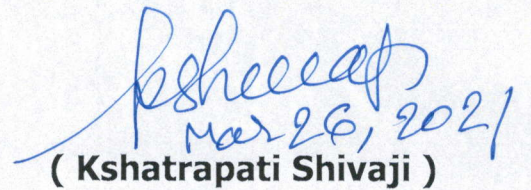 Mar 26, 2021
( Kshatrapati Shivaji )